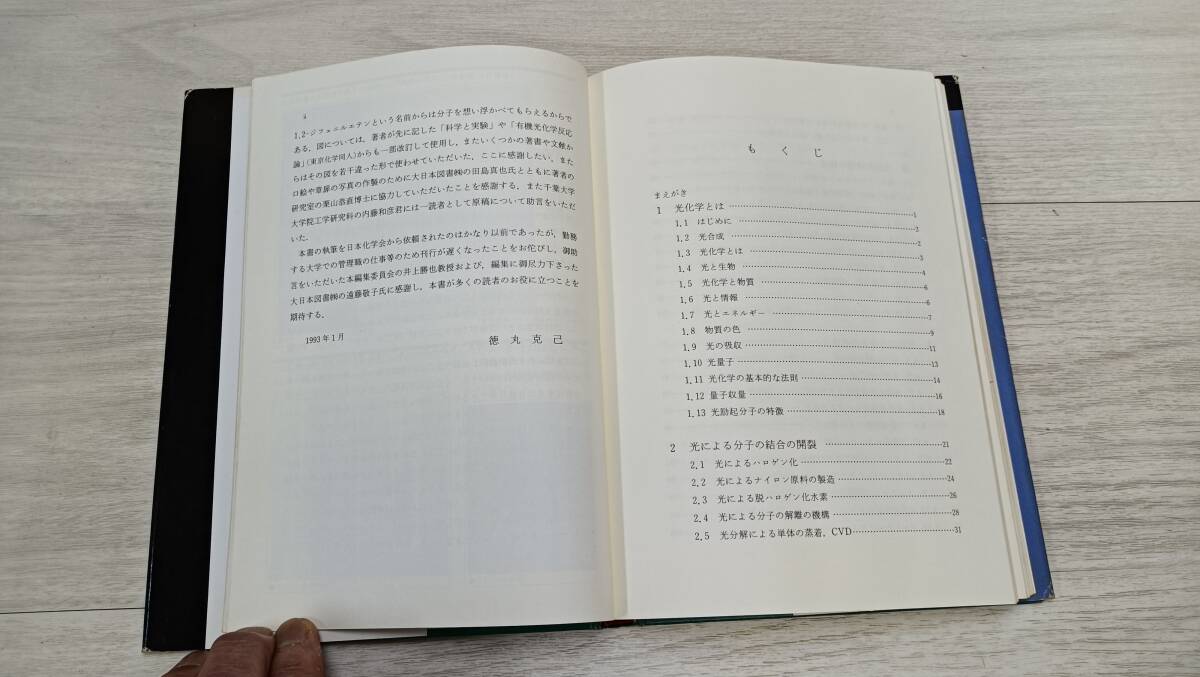 4
1,2-ジフェニルエテンという名前からは分子を想い浮かべてもらえるからで
ある。図については，著者が先に記した「科学と実験」や「有機光化学反応
論」(東京化学同人)からも一部改訂して使用し，またいくつかの著書や文献か
らはその図を若干違った形で使わせていただいた。ここに感謝したい。また
口絵や章扉の写真の作製のために大日本図書㈱の田島真也氏とともに著者の
研究室の栗山恭直博士に協力していただいたことを感謝する。また千葉大学
大学院工学研究科の内藤和彦君には一読者として原稿について助言をいただ
いた。
本書の執筆を日本化学会から依頼されたのはかなり以前であったが，勤務
する大学での管理職の仕事等のため刊行が遅くなったことをお佗びし，御助
言をいただいた本編集委員会の井上勝也教授および，編集に御尽力下さった
大日本図書㈱の遠藤敬子氏に感謝し，本書が多くの読者のお役に立つことを
期待する。
1993年1月 徳丸克己
もくじ
まえがき
1 光化学とは……1
1.1 はじめに……2
1.2 光合成……2
1.3 光化学とは……3
1.4 光と生物……4
1.5 光化学と物質……6
1.6 光と情報……6
1.7 光とエネルギー……7
1.8 物質の色……9
1.9 光の吸収……11
1.10 光量子……13
1.11 光化学の基本的な法則……14
1.12 量子収量……16
1.13 光励起分子の特徴……18
2 光による分子の結合の開裂……21
2.1 光によるハロゲン化……22
2.2 光によるナイロン原料の製造……24
2.3 光による脱ハロゲン化水素……26
2.4 光による分子の解離の機構……28
2.5 光分解による単体の蒸着，CVD……31